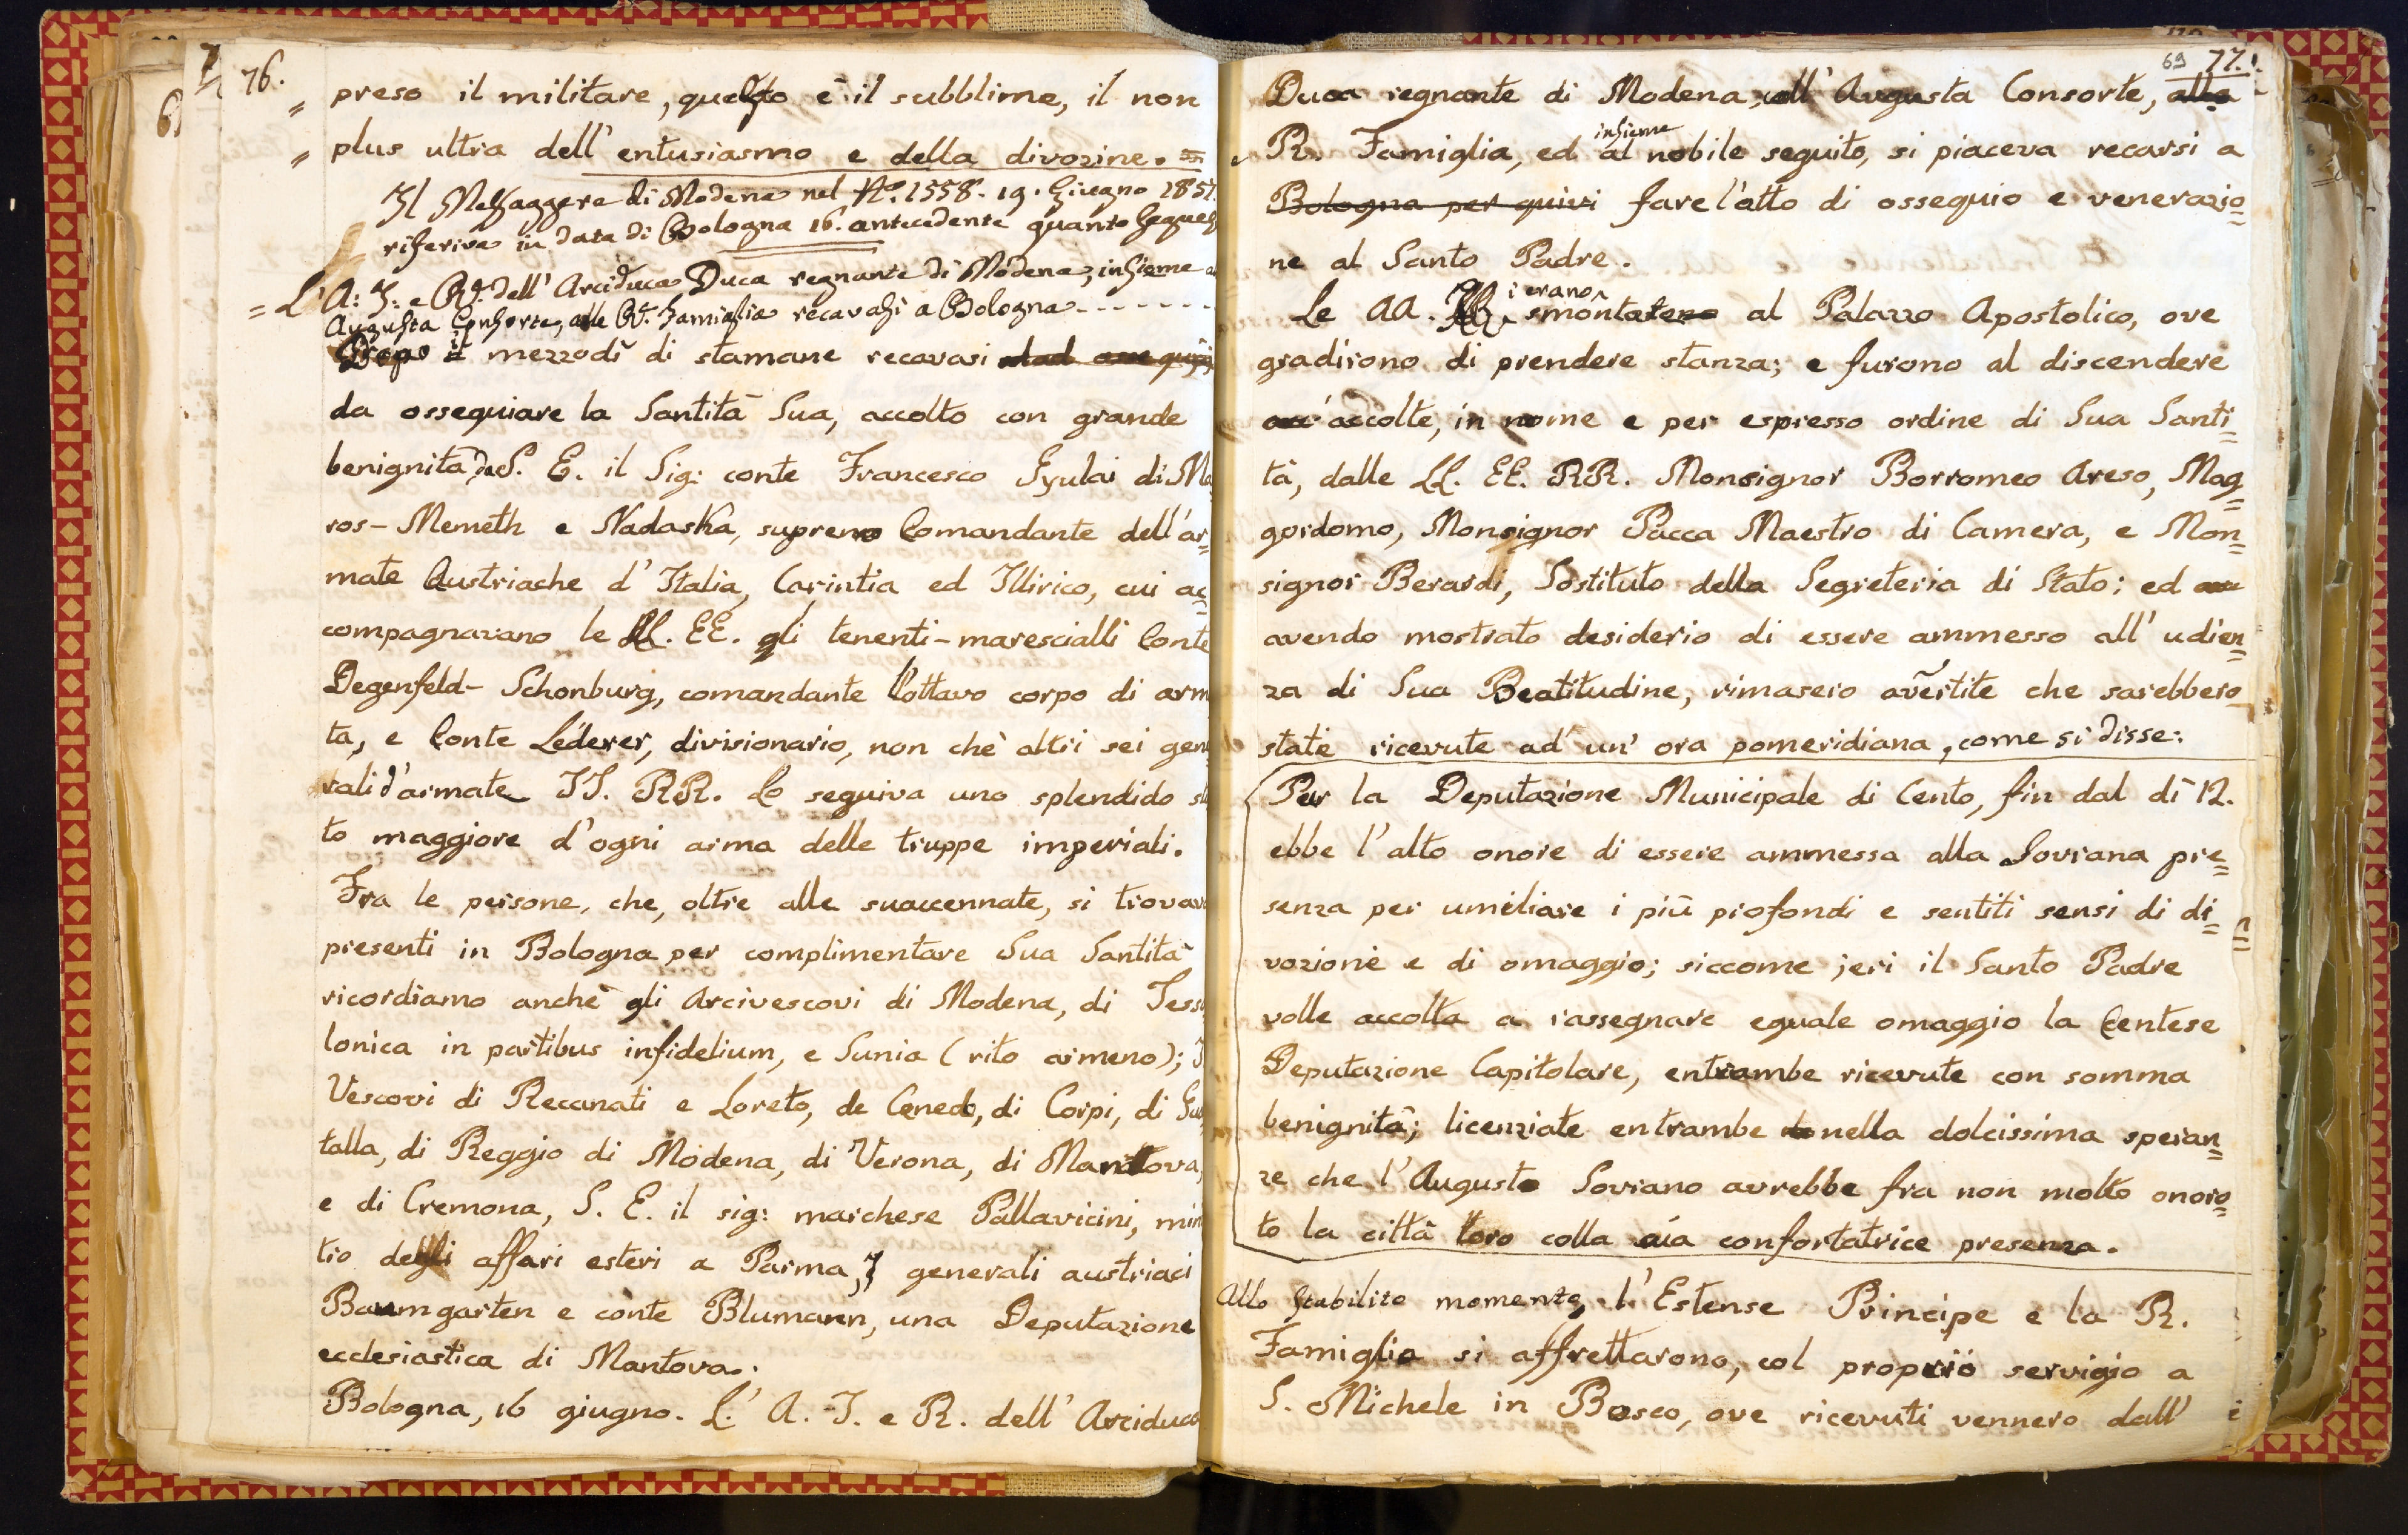 76.
preso il militare, questo è il subblime, il non
plus ultra dell' entusiasmo e della divozine.
Il Messaggere di Modena nel Nº. 1558. 19. Giugno 1857.
riferiva in data di Bologna 16. antecedente quanto
= L' A: I: e R. dell' Arciduca Duca regnante di Modena, insieme
Augusta Consorte, alle R. Famiglia recavasi a Bologna - - - - - - -
Dopo il mezzodì di stamane recavasi
da ossequiare la Santità Sua, accolto con grande
benignità, da S. E. il Sig: conte Francesco Gyulai di
ros- Memeth e Nadaskâ, supremo Comandante dell' ar=
mate Austriache d' Italia, Carintia ed Illirico, cui ac=
compagnavano le LL. EE. gli tenenti-marescialli Conte
Degenfeld- Schonburg, comandante l'ottavo corpo di arm
ta, e Conte Léderer, divisionario, non chè altri sei gen
rali d'armate II. RR. Lo seguiva uno splendido st
to maggiore d' ogni arma delle truppe imperiali.
Fra le persone, che, oltre alle suaccennate, si trovav
presenti in Bologna per complimentare Sua Santità
ricordiamo anche gli Arcivescovi di Modena, di Tess
lonica in partibus infidelium, e Sunia (rito armeno); I
Vescovi di Recanati e Loreto, de Ceneda, di Carpi, di Gua
talla, di Reggio di Modena, di Verona, di Mantova,
e di Cremona, S. E. il sig: marchese Pallavicini, min
tro degli affari esteri a Parma, I generali austriaci
Baumgarten e conte Blumann, una Deputazione
ecclesiastica di Mantova.
Bologna, 16 giugno. L.' A. I. e R. dell' Arciduca
69 77.
Duca regnante di Modena, coll' Augusta Consorte, alla
R. Famiglia, ed insieme al nobile seguito, si piaceva recarsi a
Bologna per quivi fare l'atto di ossequio e venerazio=
ne al Santo Padre.
Le AA. RR. i erano smontatene al Palazzo Apostolico, ove
gradirono di prendere stanza; e furono al discendere
accolte, in nome e per espresso ordine di Sua Santi=
tà, dalle LL. EE. RR. Monsignor Borromeo Areso, Mag=
gordomo, Monsignor Pacca Maestro di Camera, e Mon=
signor Berardi, Sostituto della Segreteria di Stato; ed
avendo mostrato desiderio di essere ammesso all' udien=
za di Sua Beatitudine, rimasero avertite che sarebbero
state ricevute ad un' ora pomeridiana, come si disse:
Pur la Deputazione Municipale di Cento, fin dal dì 12.
ebbe l' alto onore di essere ammessa alla Sovrana pre=
senza per umiliare i più profondi e sentiti sensi di di=
vozione e di omaggio; siccome jeri il Santo Padre
volle accolta a rassegnare eguale omaggio la Centese
Deputazione Capitolare, entrambe ricevute con somma
benignità; licenziate entrambe nella dolcissima speran=
ze che l' Augusto Sovrano avrebbe fra non molto onora=
to la città loro colla confortatrice presenza.
Allo stabilito momento, l' Estense Principe e la R.
Famiglia si affrettarono, col proprio servigio a
S. Michele in Bosco, ove ricevuti vennero dall'